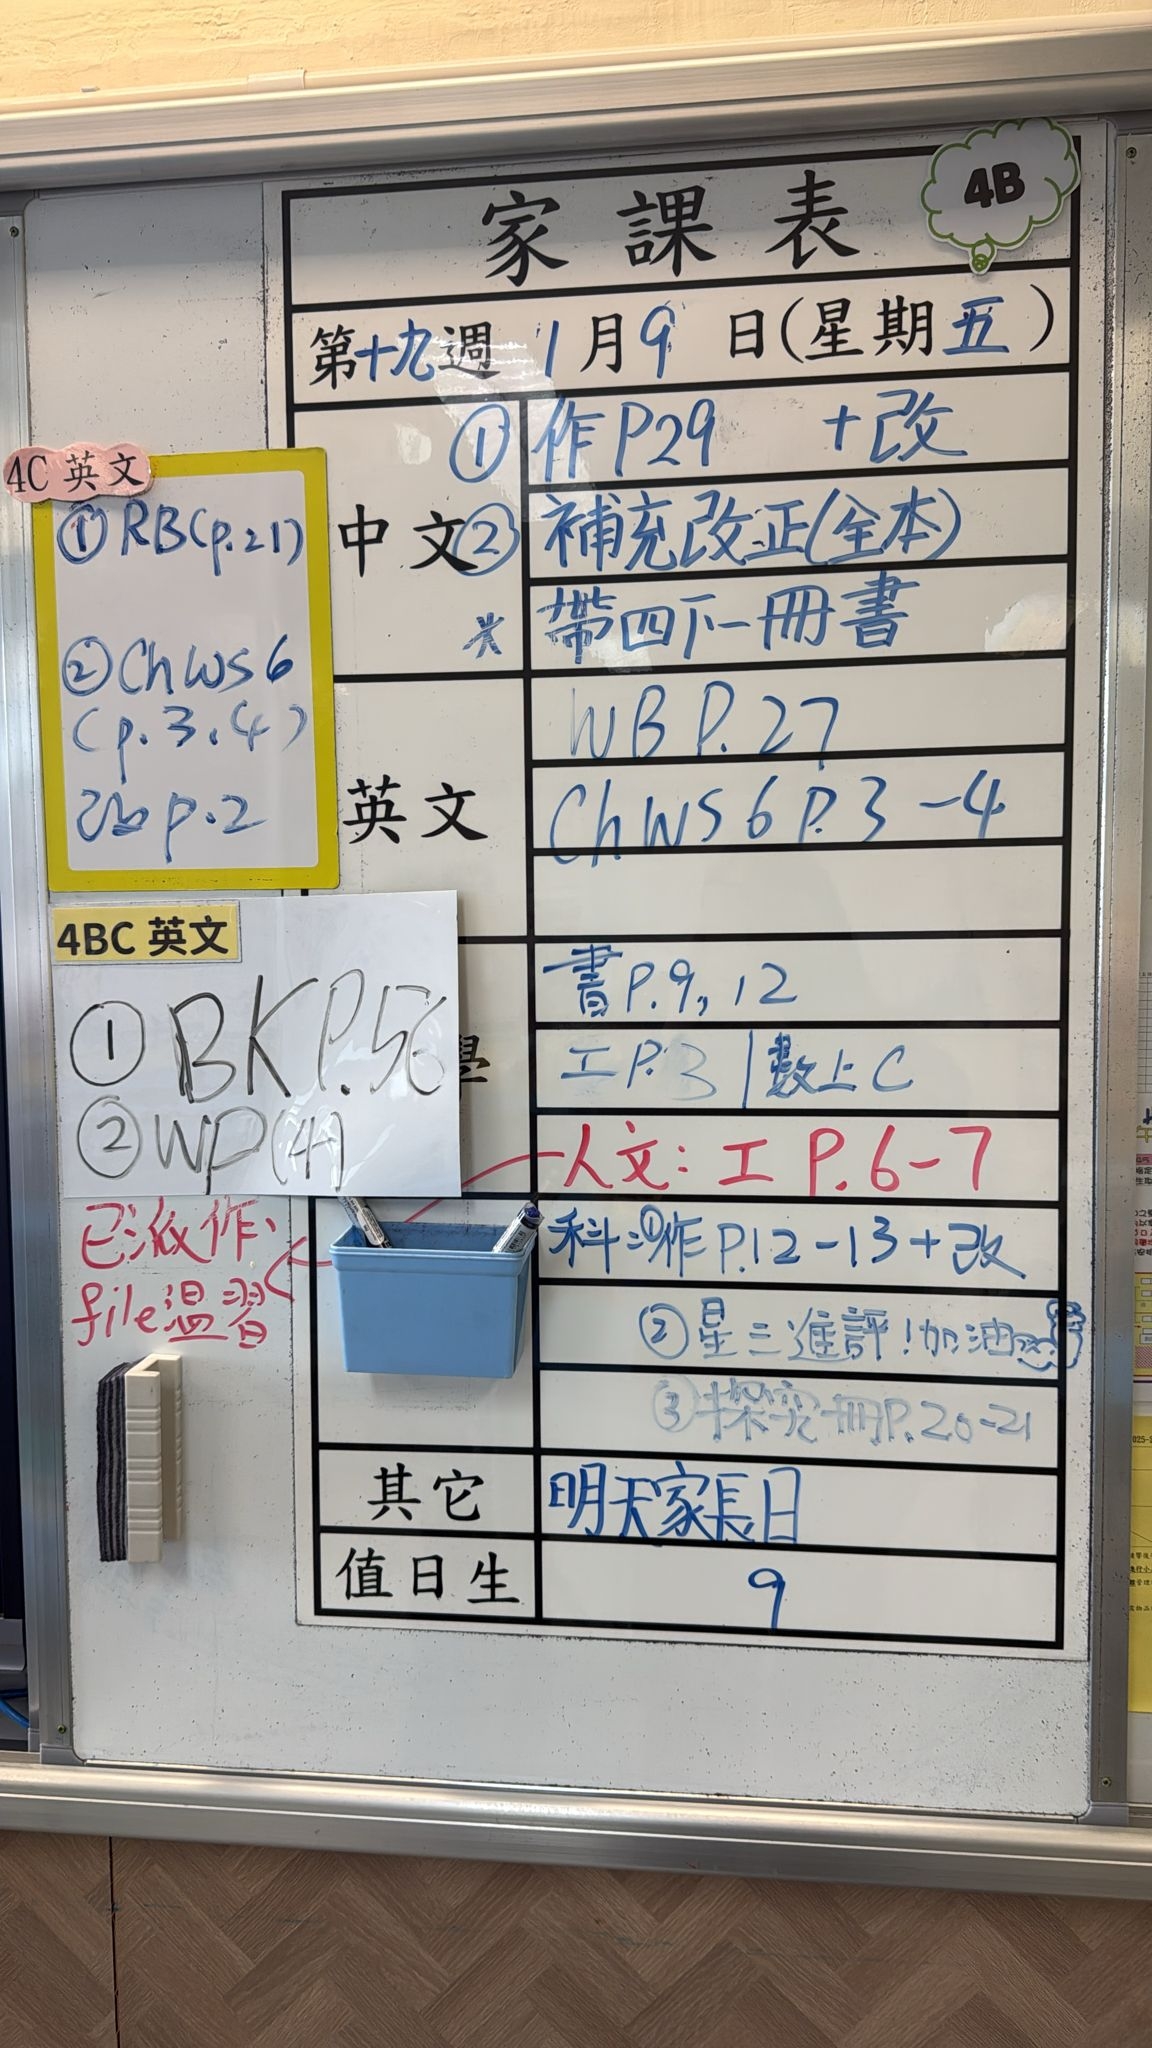 家課表
4B
第十九週 1月9日(星期五)
中文
① 作P29 +改
② 補充改正(全本)
* 帶四下一冊書
英文
WB P.27
Ch WS 6 P.3-4
學
書P.9,12
工P.3 | 數上C
人文: 工 P.6-7
科:①作P.12-13+改
②星三進評!加油
③探究冊P.20-21
其它
明天家長日
值日生
9
4C 英文
① RB(p.21)
② Ch WS 6
(p.3.4)
p.2
4BC 英文
① BK P.56
② WP(4)
已派作、
file溫習